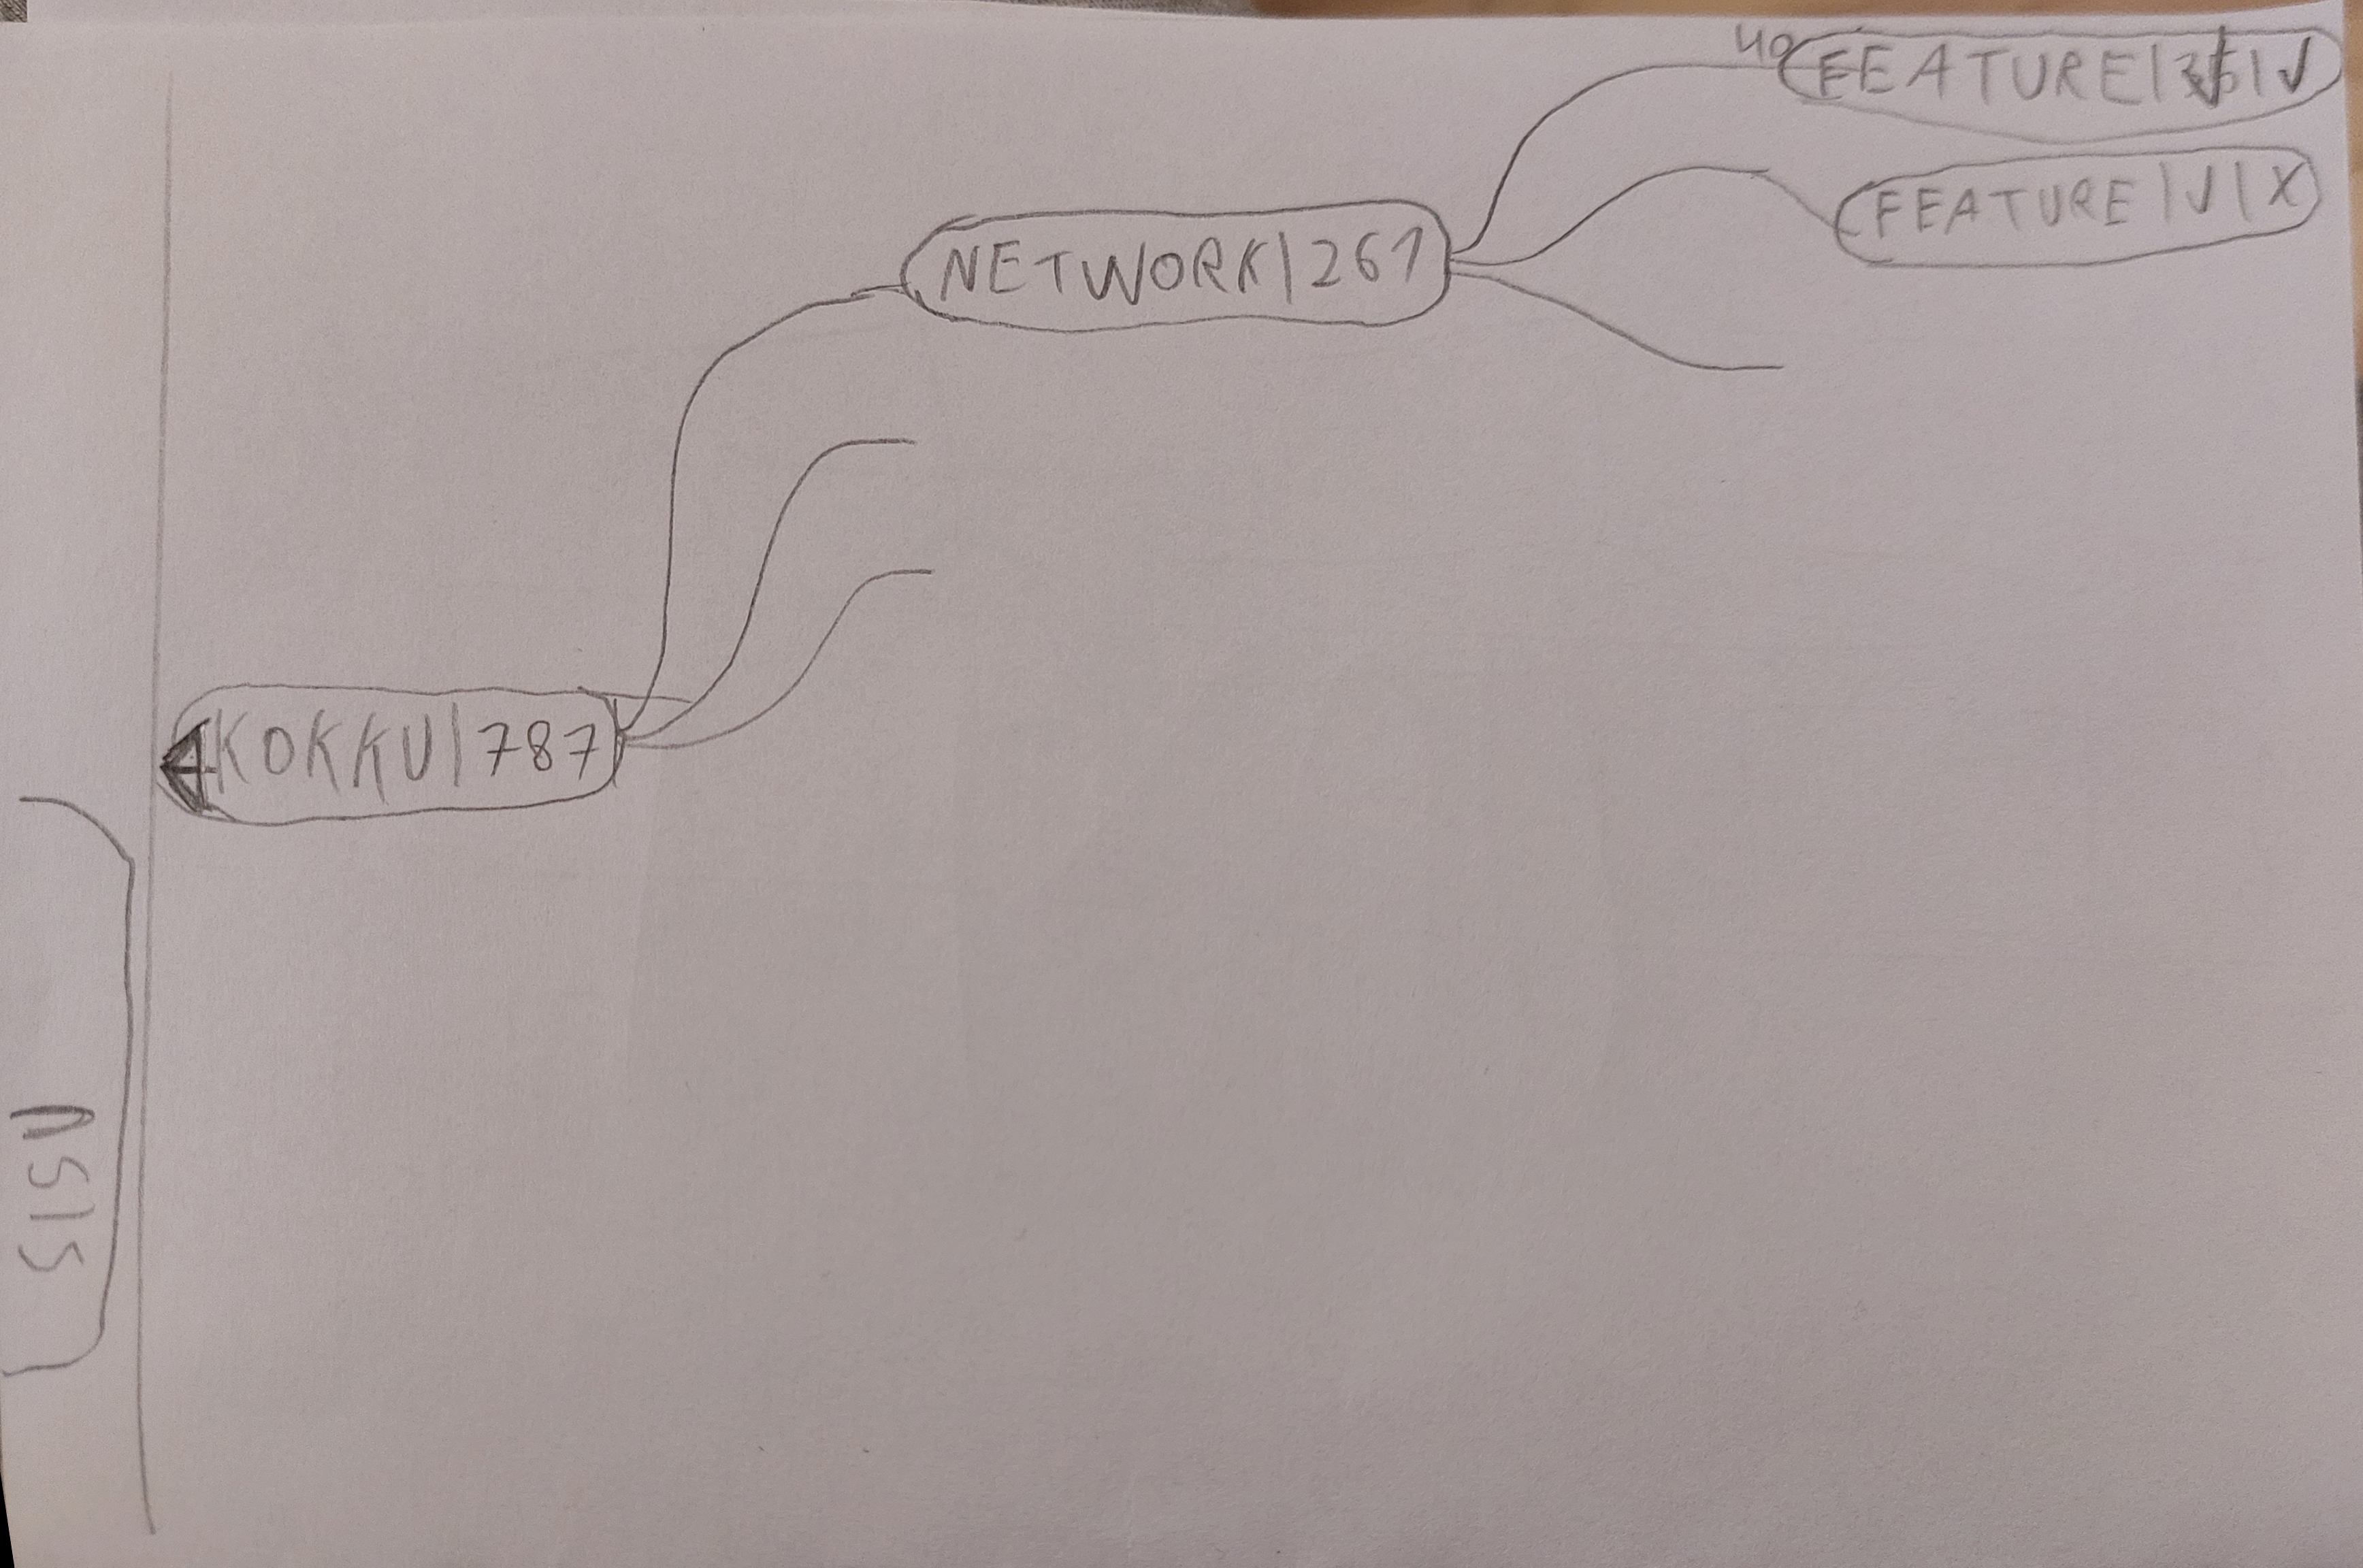 40
FEATURE | √
FEATURE | √ | X
NETWORK | 261
KOKKU | 787